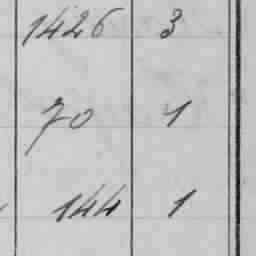 1426 3
70 1
144 1